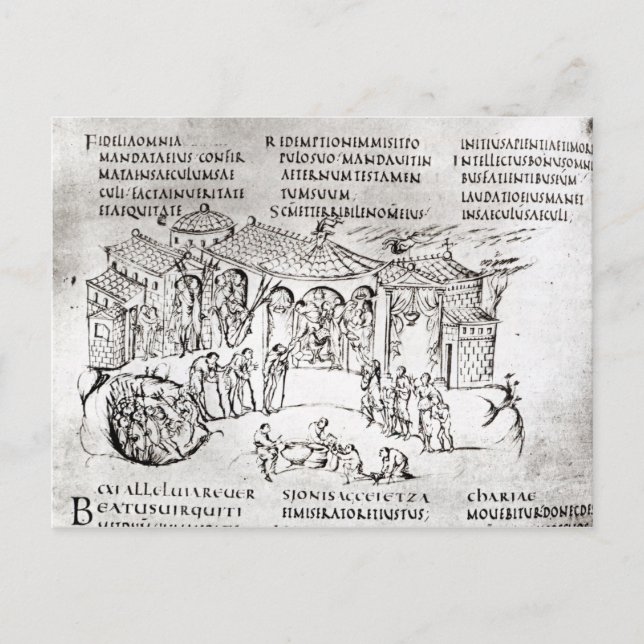 FIDELIA OMNIA
MANDATA EIUS·CONFIR
MATA IN SAECULUM SAE
CULI·FACTA IN UERITATE
ET AEQUITATE
REDEMPTIONEM MISIT PO
PULO SUO·MANDAUIT IN
AETERNUM TESTAMEN
TUM SUUM;
SC̄M ET TERRIBILE NOM̄ EIUS·
INITIUM SAPIENTIAE TIMOR
INTELLECTUS BONUS OMNI
BUS FACIENTIBUS EUM;
LAUDATIO EIUS MANET
IN SAECULUM SAECULI;
CXI ALLELUIA REUER
SIONIS AGGEI ET ZA
CHARIAE
BEATUS UIR QUI TI
EI MISERATOR ET IUSTUS;
MOUEBITUR·DONEC DES